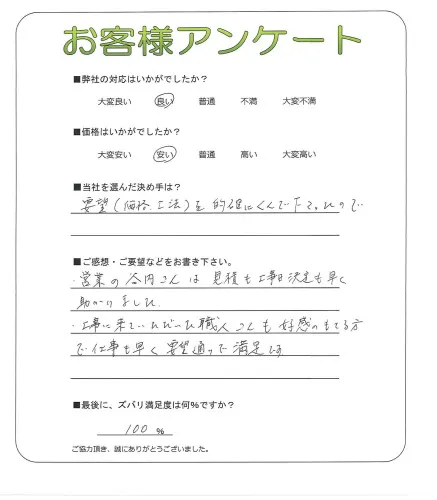 お客様アンケート
■弊社の対応はいかがでしたか？
大変良い 良い 普通 不満 大変不満
■価格はいかがでしたか？
大変安い 安い 普通 高い 大変高い
■当社を選んだ決め手は？
要望(価格、工法)を的確にくんで下さったので
■ご感想・ご要望などをお書き下さい。
・営業の谷内さんは見積も工事日決定も早く
助かりました
・工事に来ていただいた職人さんも好感のもてる方
で仕事も早く要望通りで満足です
■最後に、ズバリ満足度は何%ですか？
100 %
ご協力頂き、誠にありがとうございました。